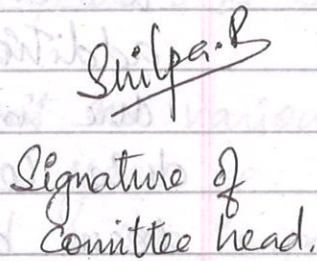 Shilpa.B
Signature of
Comittee head.